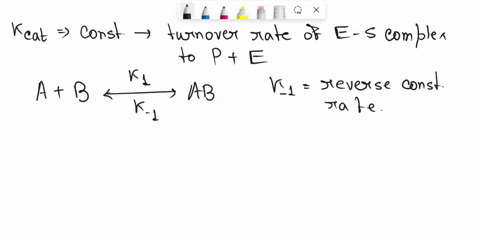 Kcat => const → turnover rate of E-S complex
to P + E
A + B ⟷ AB
K1
K-1
K-1 = reverse const.
rate.